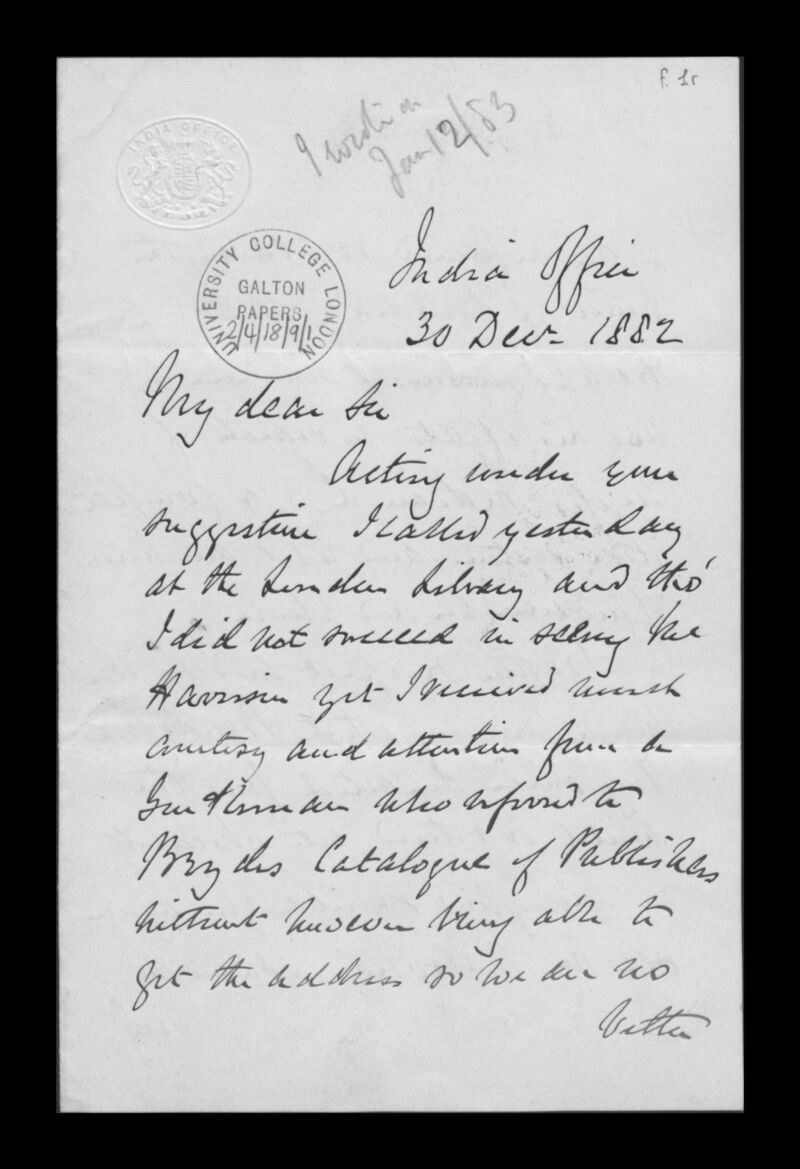 f. 1r
I wrote on
Jan 12/83
INDIA OFFICE
UNIVERSITY COLLEGE LONDON
GALTON
PAPERS
2/4/18/9/1
India Office
30 Decr 1882
My dear Sir
Acting under your
suggestion I called yesterday
at the London Library and tho'
I did not succeed in seeing Mr
Harrison yet I received much
courtesy and attention from a
Gentleman who referred to
Catalogue of Publishers
without however being able to
get the address so we are no
better